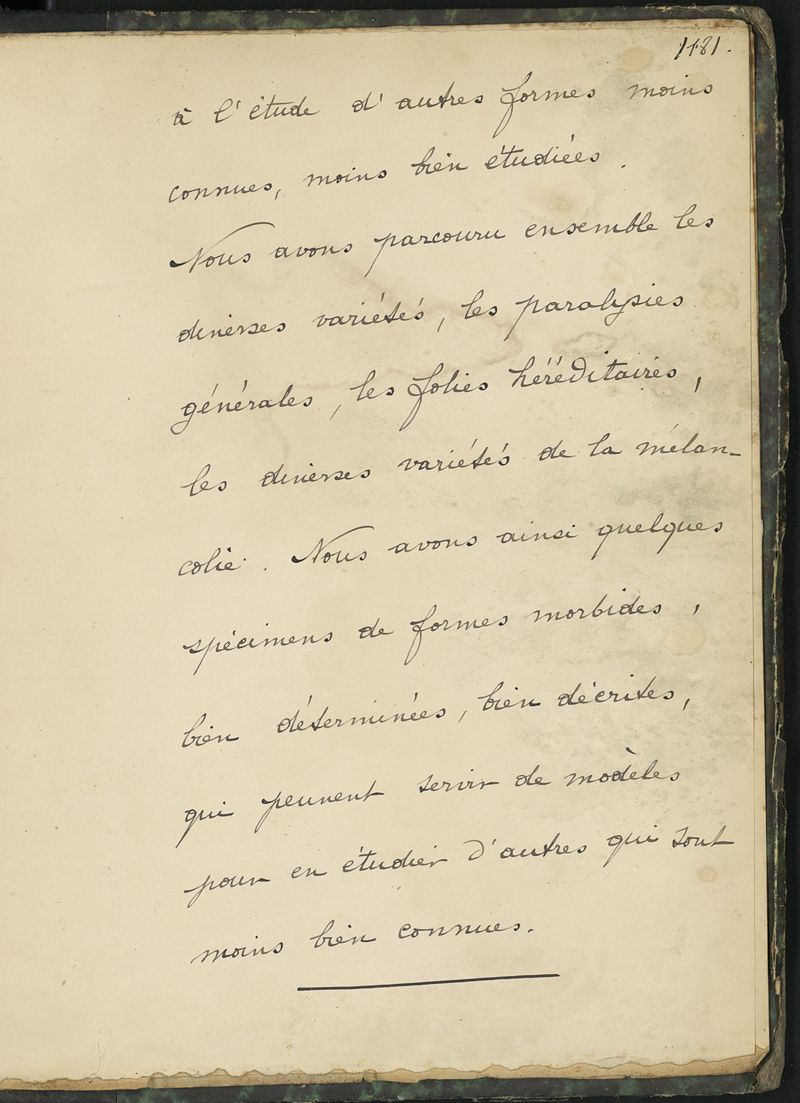 1181.
à l'étude d'autres formes moins
connues, moins bien étudiées.
Nous avons parcouru ensemble les
diverses variétés, les paralysies
générales, les folies héréditaires,
les diverses variétés de la mélan-
colie. Nous avons ainsi quelques
spécimens de formes morbides,
bien déterminées, bien décrites,
qui peuvent servir de modèles
pour en étudier d'autres qui sont
moins bien connues.